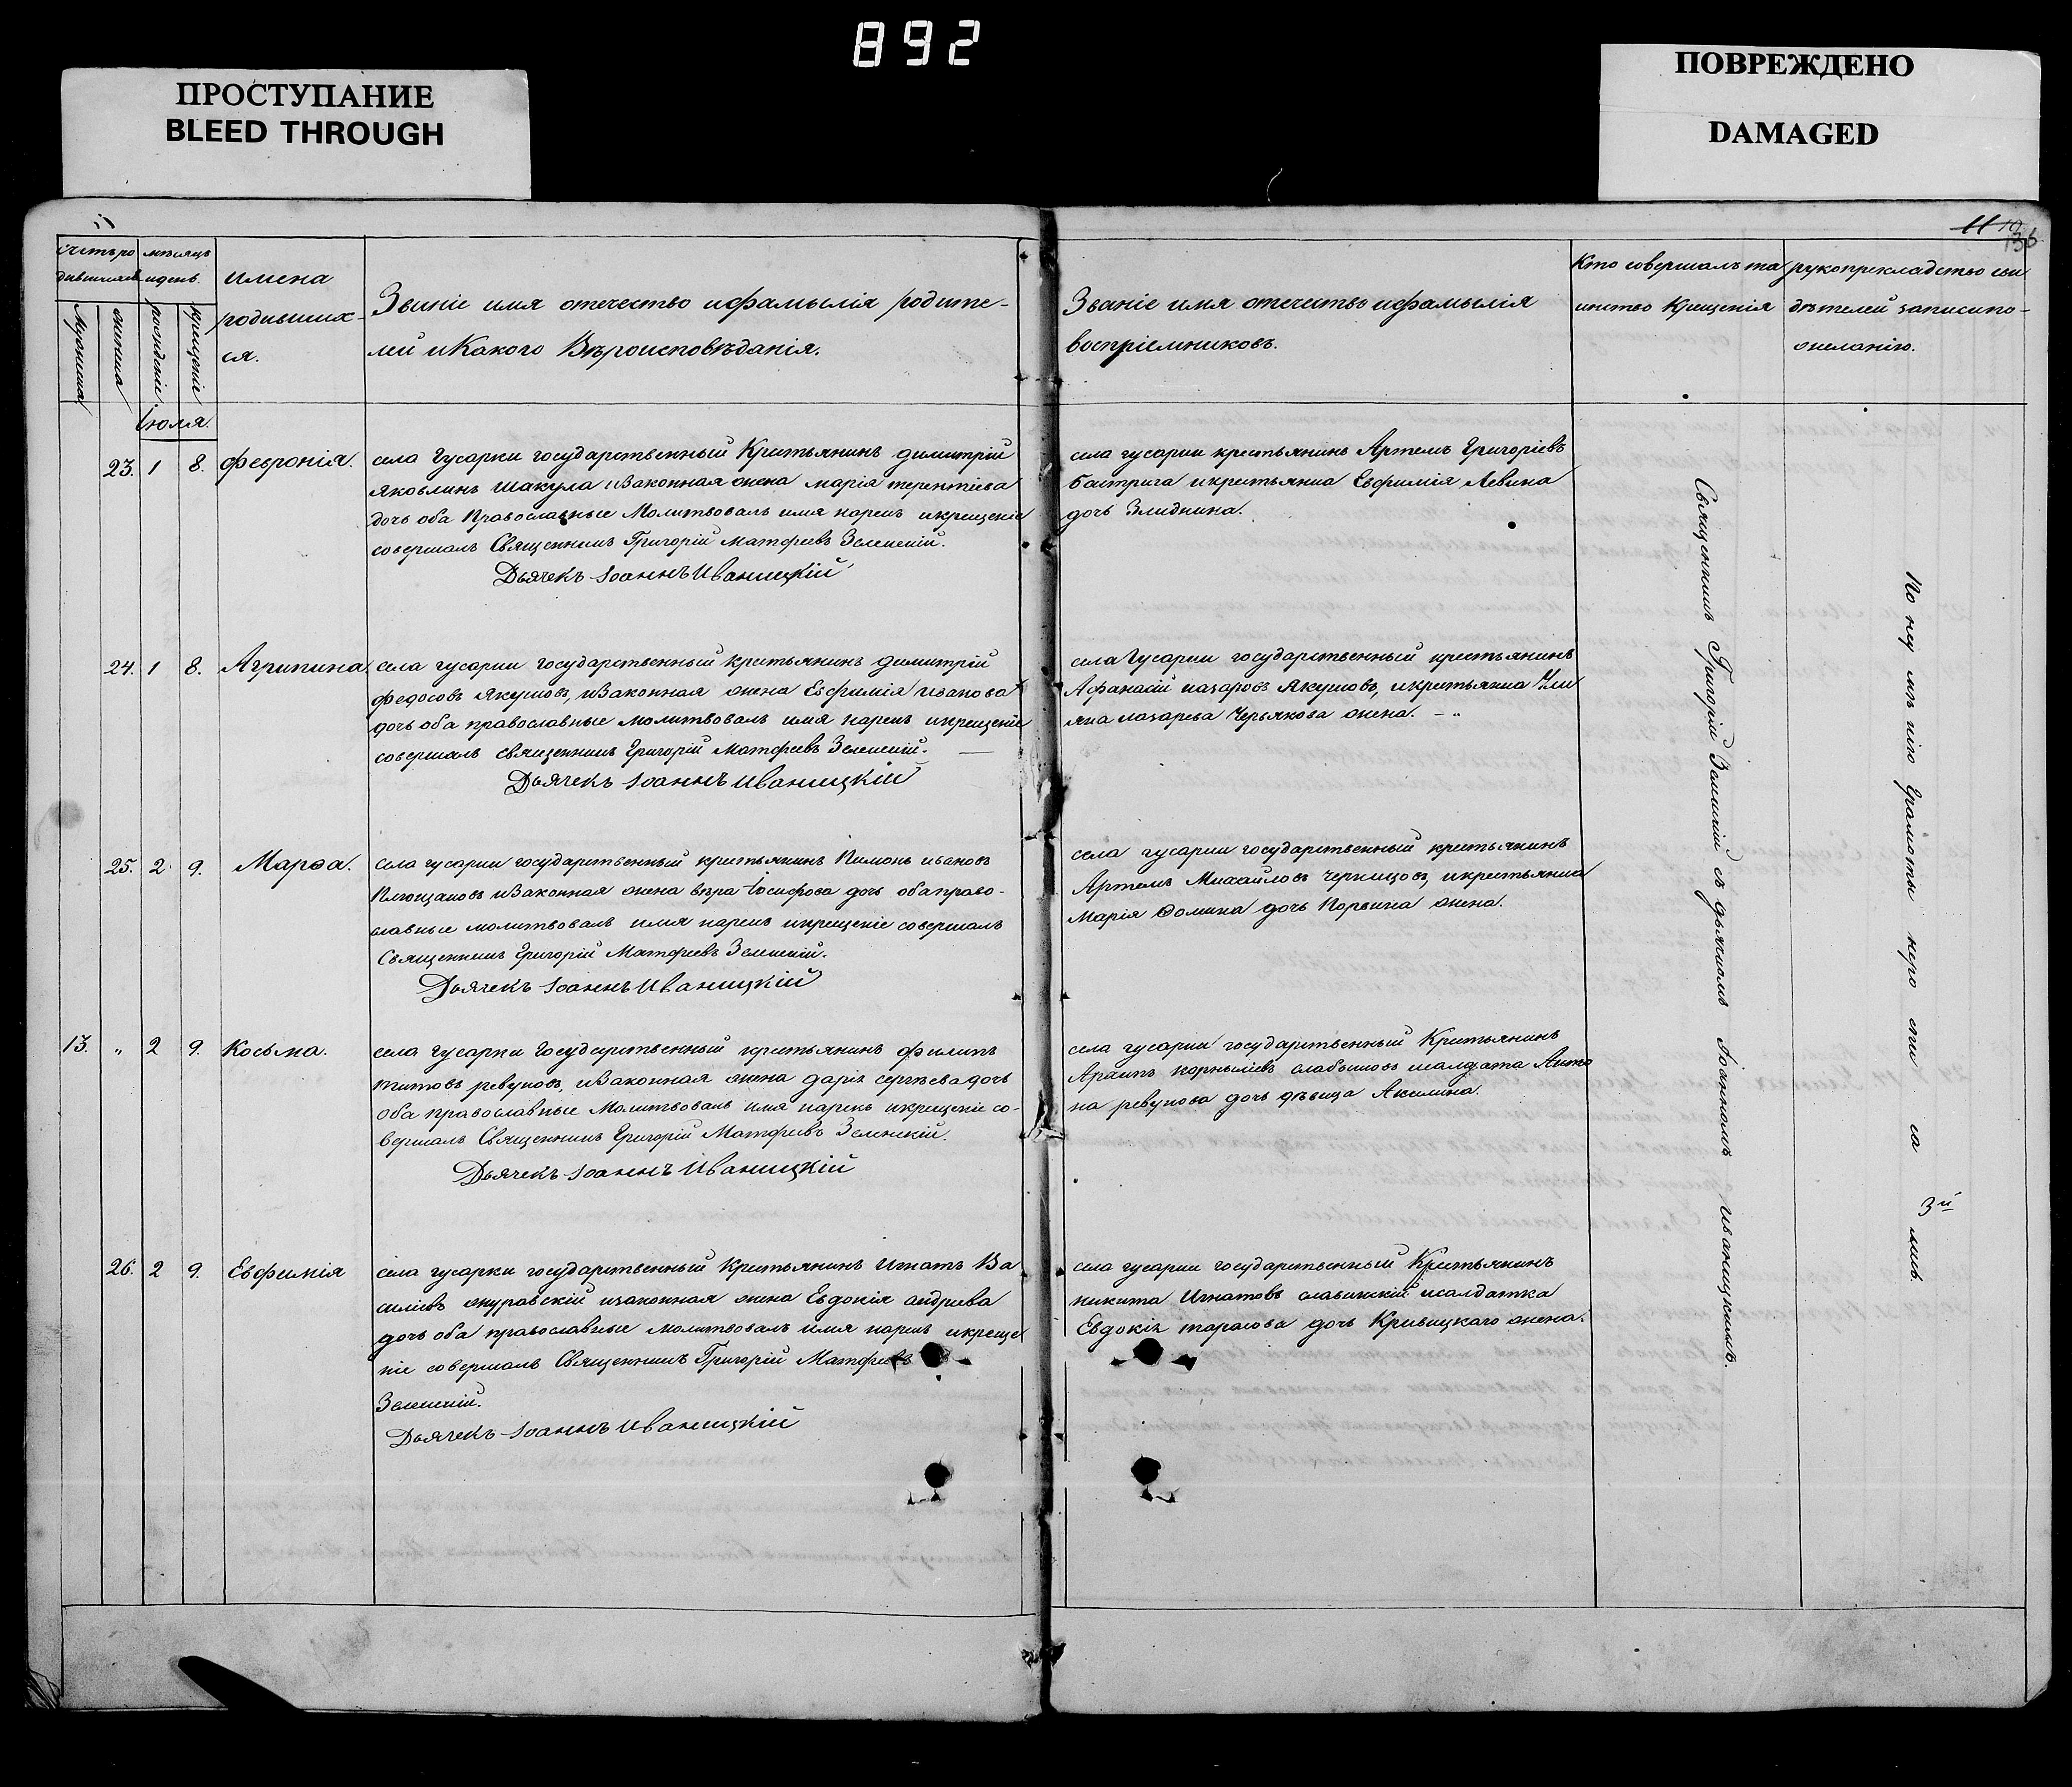 892
ПРОСТУПАНИЕ
BLEED THROUGH
ПОВРЕЖДЕНО
DAMAGED
11
имена
родивших-
ся.
мужеска
женска
рожденіе
крещеніе
мѣсяцъ
и день.
Званіе имя отечество ифамылія родите-
лей иКакого Вѣроисповѣданія.
Званіе имя отечествъ ифамылія
воспріемниковъ.
Кто совершалъ та
инство Крещенія
рукоприкладство сви
дѣтелей записи по-
желанію.
Іюля.
23. 1 8. Феѵронія.
села Гусарки государственный Крестьянинъ димитрій
Яковлинъ Шакула изаконная жена марія терентіева
дочь оба Православные Молитвовалъ имя нарекъ икрещеніе
совершалъ Священникъ Григорій матфеевъ Зеленскій.
Дьячекъ Іоаннъ Иваницкій
села гусарки крестьянинъ Артемъ Григоріевъ
Бастрига икрестьянка Евфимія Левина
дочь Злиднина.
24. 1 8. Агрипина
села гусарки государственный крестьянинъ димитрій
федосовъ Якушовъ, изаконная жена Евфимія иванова
дочь оба православные молитвовалъ имя нарекъ икрещеніе
совершалъ священникъ Григорій Матфеевъ Зеленскій.
Дьячекъ Іоаннъ Иваницкій
села Гусарки государственный крестьянинъ
Афанасій назаровъ Якушовъ, икрестьянка Ули
яна лазарева Черьякова жена.
25. 2 9. Марѳа.
села гусарки государственный крестьянинъ Пимонъ ивановъ
Плющаковъ изаконная жена вѣра Іосифова дочь оба право-
славные молитвовалъ имя нарекъ икрещеніе совершалъ
Священникъ Григорій Матфеевъ Зеленскій.
Дьячекъ Іоаннъ Иваницкій
села гусарки государственный крестьянинъ
Артемъ Михайловъ Черницовъ, икрестьянка
Марія Ѳомина дочь жена.
13. „ 2 9. Косьма.
села Гусарки Государственный крестьянинъ филипъ
титовъ ревуновъ, изаконная жена дарія сергѣева дочь
оба православные Молитвовалъ имя нарекъ икрещеніе со-
вершалъ Священникъ Григорій Матфеевъ Зеленскій.
Дьячекъ Іоаннъ Иваницкій
села гусарки государственный Крестьянинъ
Архипъ корныліевъ исалдата Анто
на ревунова дочь дѣвица Акилина.
26. 2 9. Евфимія
села гусарки государственный Крестьянинъ Игнатъ Ва
силіевъ журавскій изаконная жена Евдокія андреева
дочь оба православные молитвовалъ имя нарекъ икреще
ніе совершалъ Священникъ Григорій Матфеевъ
Зеленскій.
Дьячекъ Іоаннъ Иваницкій
села гусарки государственный Крестьянинъ
никита Игнатовъ славинскій исалдатка
Евдокія тарасова дочь Кривицкаго жена.
Священникъ Григорій Зеленскій съ дьячкомъ Іоанномъ Иваницкимъ.
Грамоты